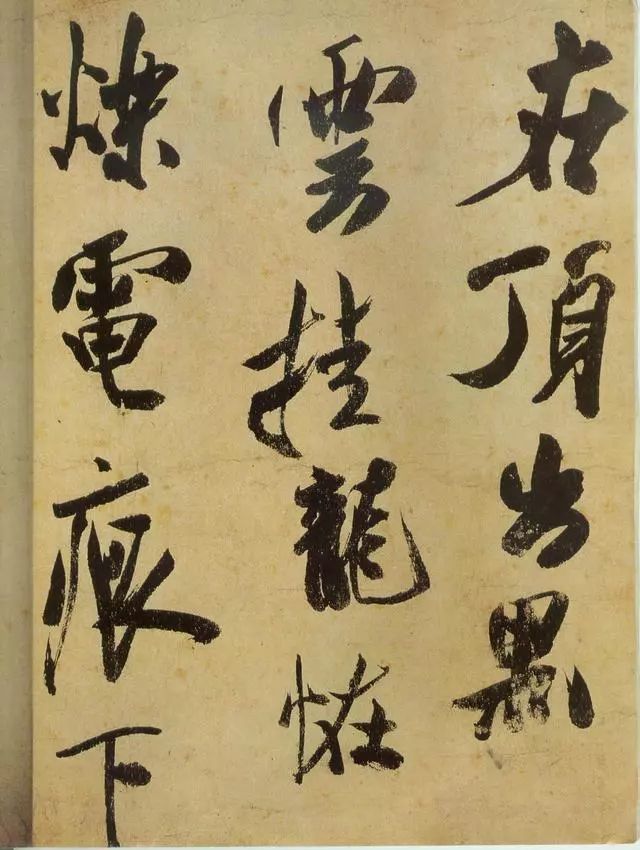 在頂出黑
雲挂龍恠
爍電痕下